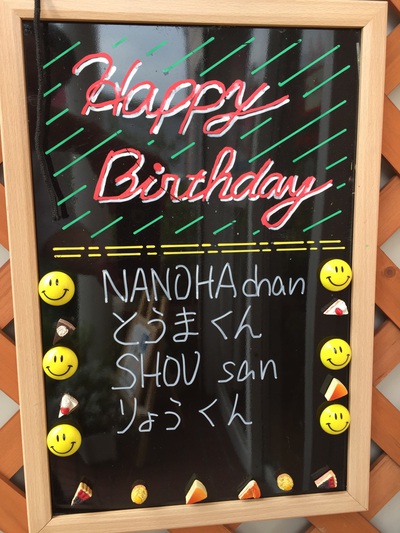 Happy
Birthday
NANOHA chan
とうまくん
SHOU san
りょうくん